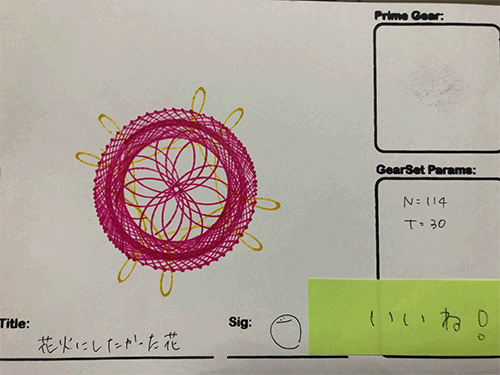 Prime Gear:
GearSet Params:
N=114
T=30
いいね!
Title:
花火にしたかった花
Sig: